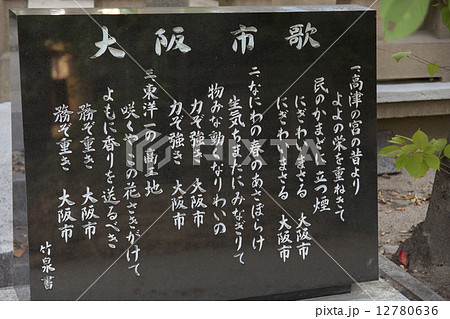 大阪市歌
一、高津の宮の昔より
よよの栄を重ねきて
民のかまどに立つ煙
にぎわいまさる 大阪市
にぎわいまさる 大阪市
二、なにわの春のあさぼらけ
生気ちまたにみなぎりて
物みな動くなりわいの
力ぞ強き 大阪市
力ぞ強き 大阪市
三、東洋一の商工地
咲くやこの花さきがけて
よもに香りを送るべき
務ぞ重き 大阪市
務ぞ重き 大阪市
竹泉書
pixta.jp - 12780636